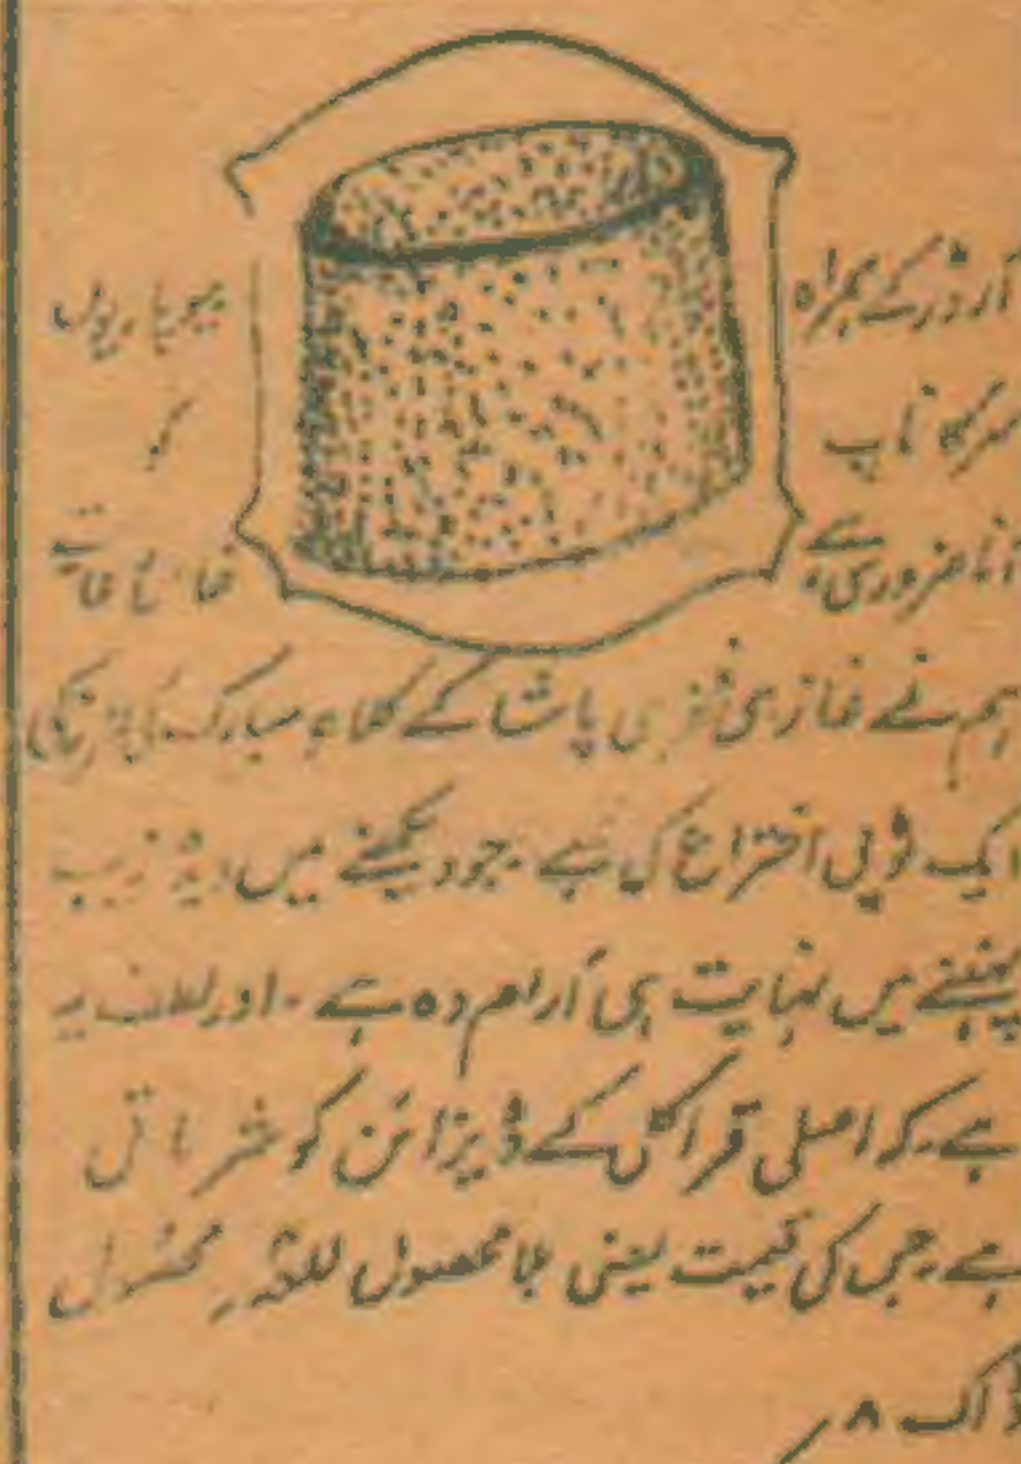 آرڈر کے ہمراہ
سر کا ناپ
آنا ضروری ہے
بیوپاریوں
کو
خاص رعایت
ہم نے غازی انور پاشا کے کلاہ مبارک کی طرز کی
ایک ٹوپی اختراع کی ہے۔ جو دیکھنے میں دیدہ زیب
پہننے میں نہایت ہی آرام دہ ہے۔ اور لطف یہ
ہے۔ کہ اصلی قراقلی کے ڈیزائن کو شرماتی
ہے۔ جس کی قیمت یعنی بلا محصول للعہ محصول
ڈاک ۸؍